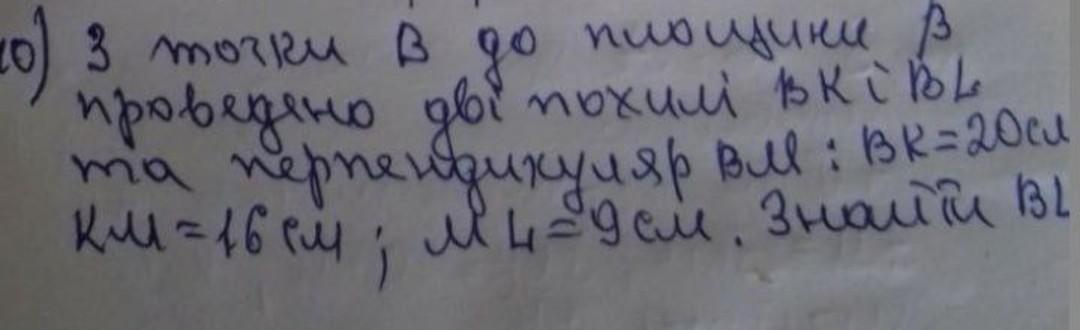 10) З точки B до площини β
проведено дві похилі BK і BL
та перпендикуляр BM : BK=20см
KM=16см ; ML=9см. Знайти BL